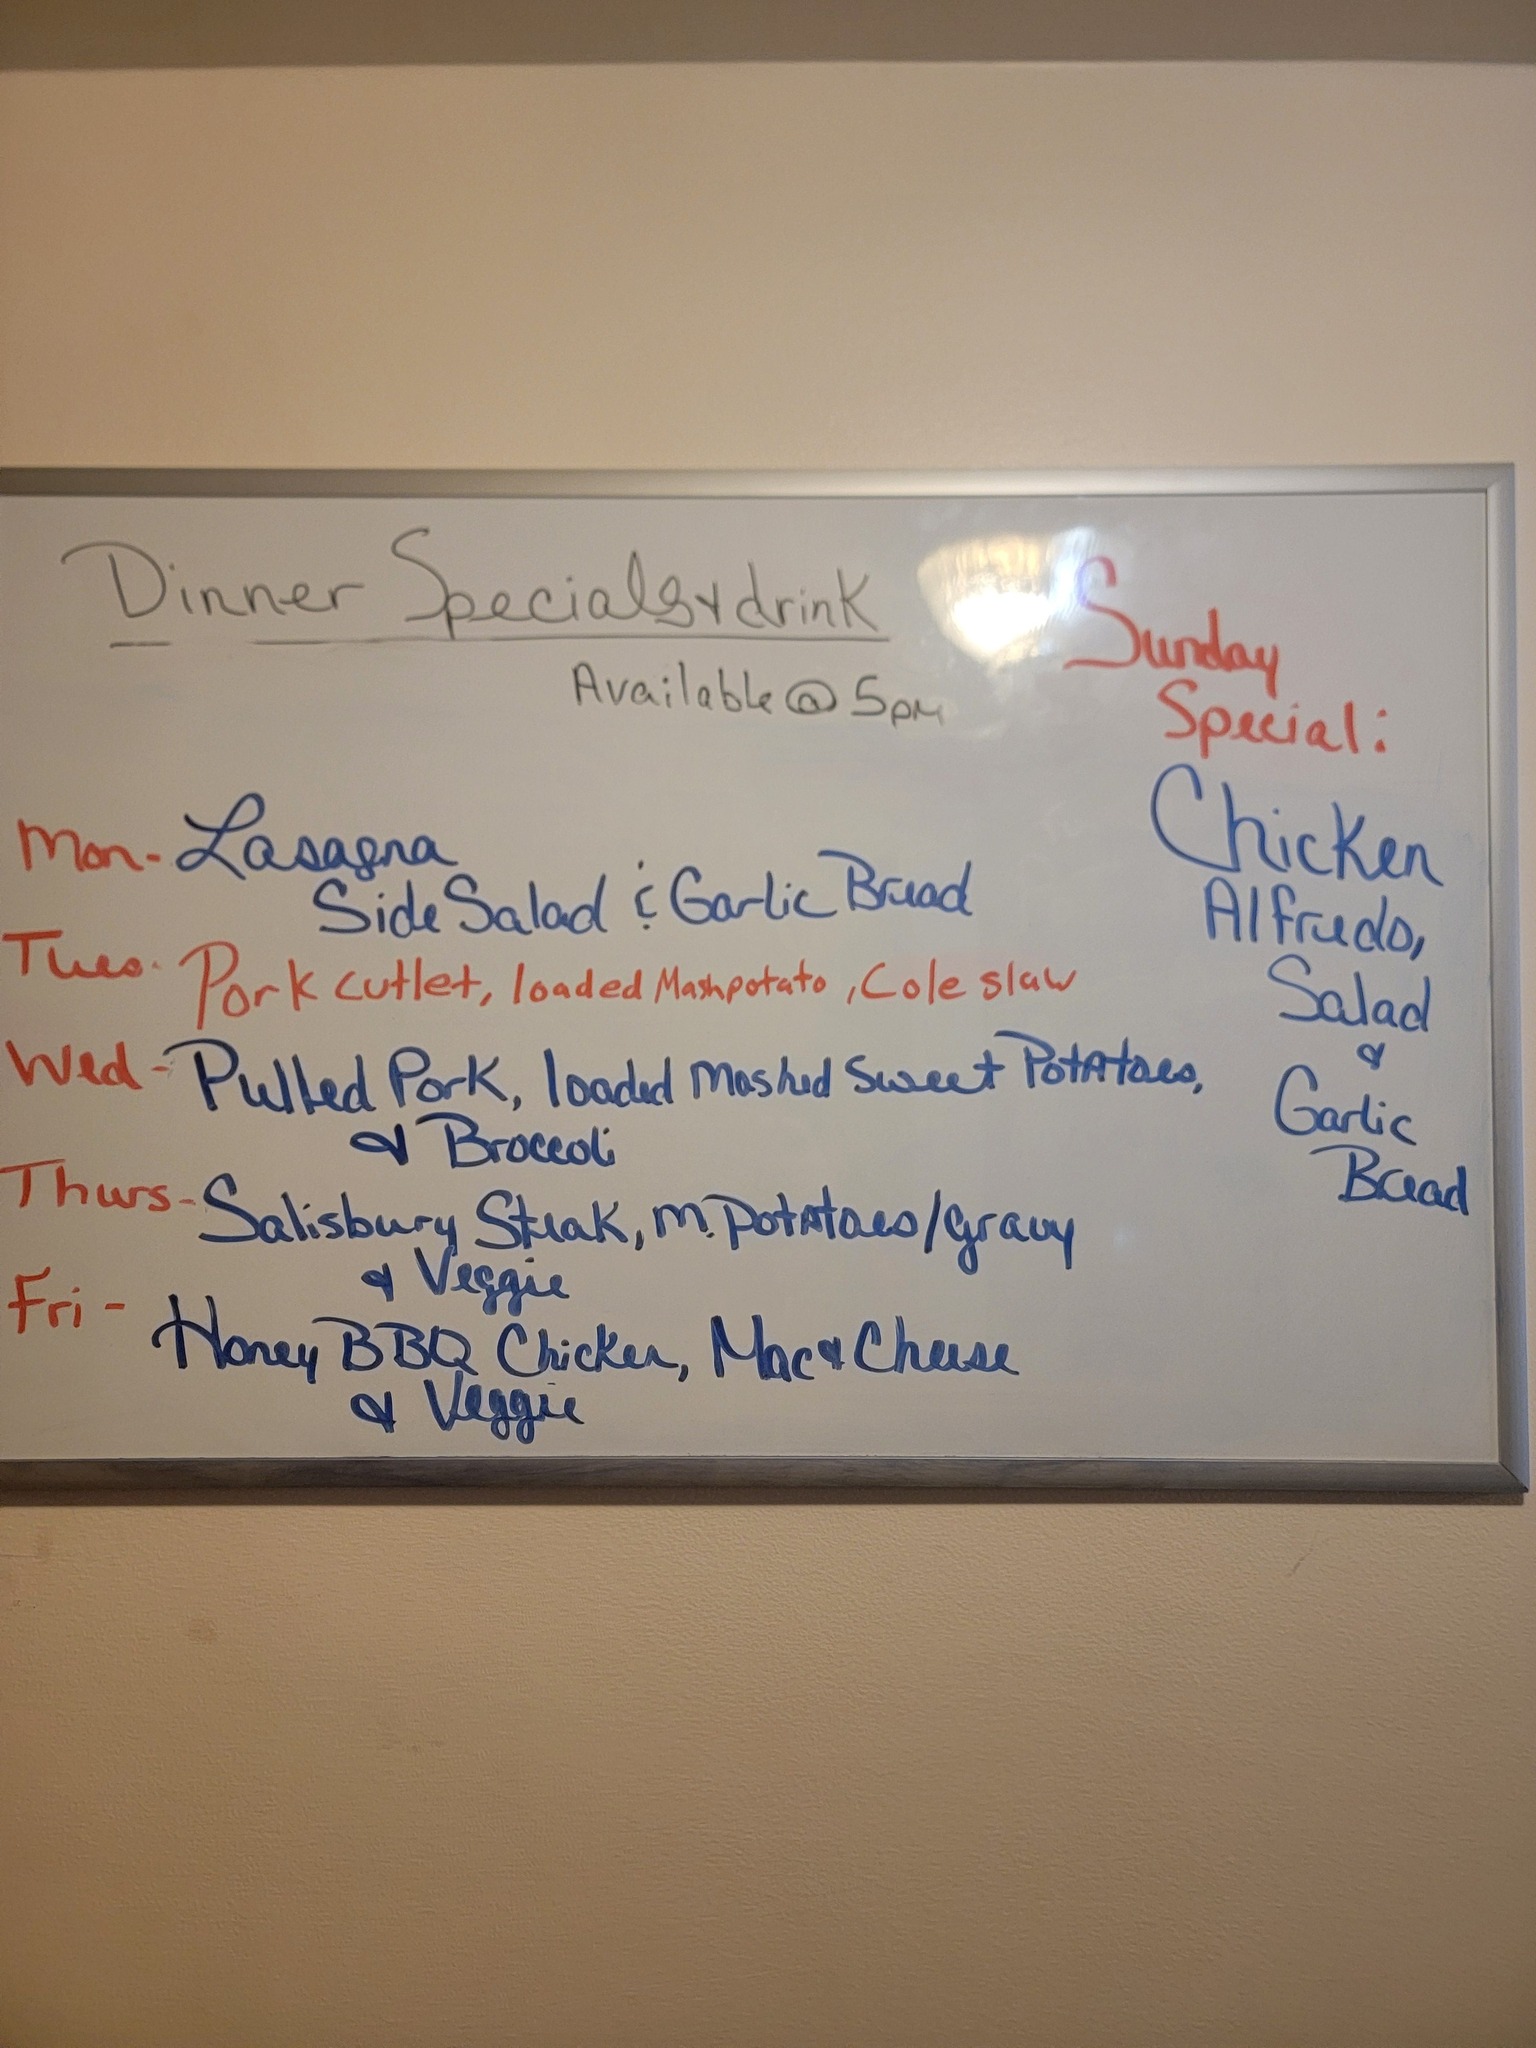 Dinner Specials & drink
Available @ 5pm
Mon- Lasagna
Side Salad & Garlic Bread
Tues. Pork cutlet, loaded Mashpotato, Cole slaw
Wed- Pulled Pork, loaded Mashed Sweet Potatoes,
& Broccoli
Thurs- Salisbury Steak, m. Potatoes/gravy
& Veggie
Fri- Honey BBQ Chicken, Mac & Cheese
& Veggie
Sunday
Special:
Chicken
Alfredo,
Salad
&
Garlic
Bread